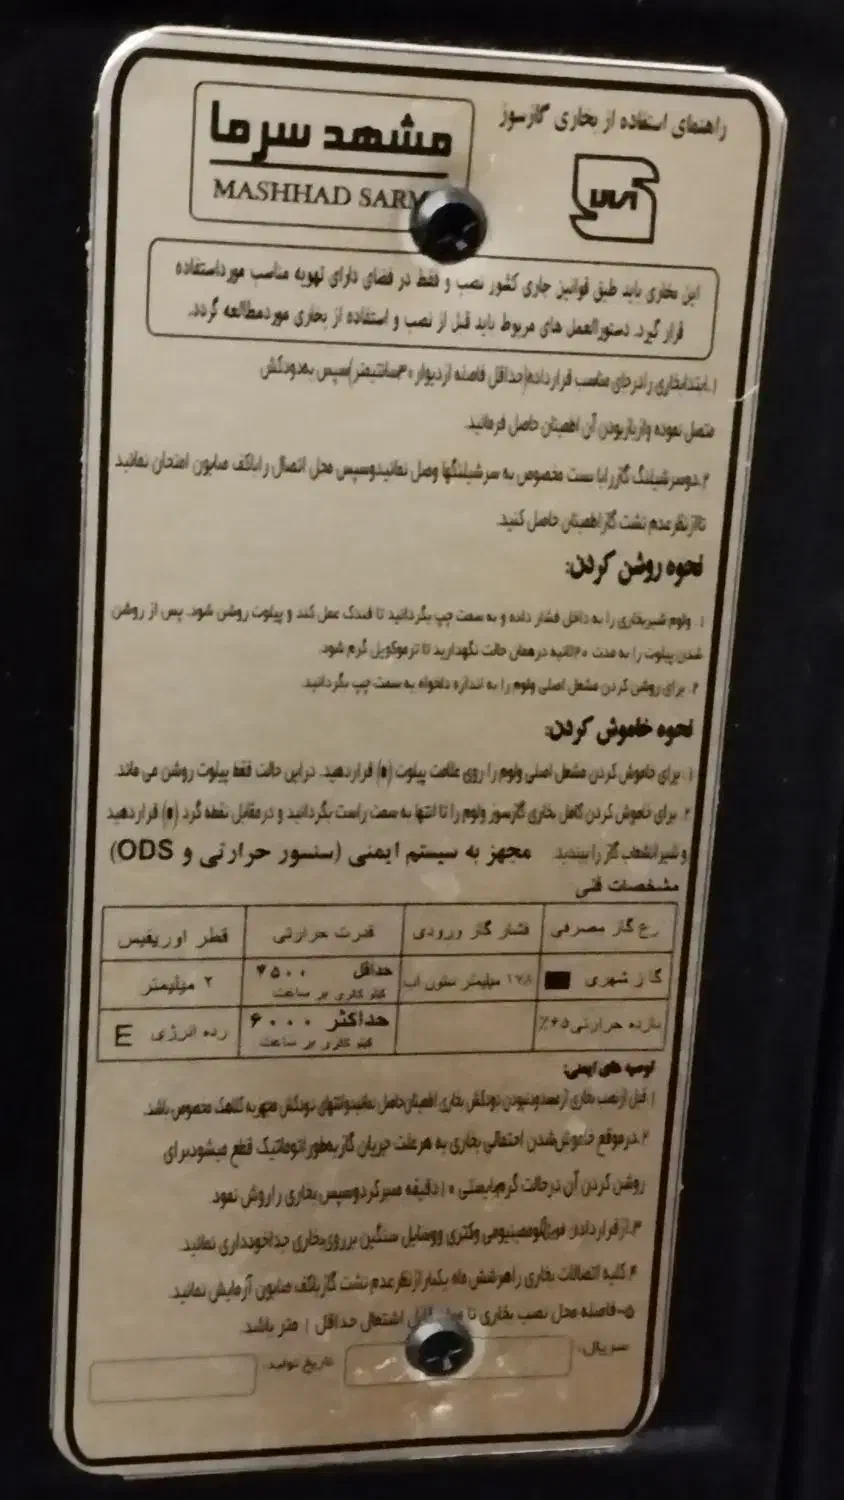 راهنمای استفاده از بخاری گازسوز
مشهد سرما
MASHHAD SARM
این بخاری باید طبق قوانین جاری کشور نصب و فقط در فضای دارای تهویه مناسب مورداستفاده
قرار گیرد. دستورالعمل های مربوط باید قبل از نصب و استفاده از بخاری موردمطالعه گردد.
۱.ابتدابخاری رادرجای مناسب قرارداده(حداقل فاصله ازدیوار۳۰سانتیمتر)سپس به‌دودکش
متصل نموده وازبازبودن آن اطمینان حاصل فرمائید.
۲.دوسرشیلنگ گازرابا بست مخصوص به سرشیلنگها وصل نمائیدوسپس محل اتصال راباکف صابون امتحان نمائید
تاازنظرعدم نشت گازاطمینان حاصل کنید.
نحوه روشن کردن:
۱. ولوم شیربخاری را به داخل فشار داده و به سمت چپ بگردانید تا فندک عمل کند و پیلوت روشن شود. پس از روشن
شدن پیلوت را به مدت ۲۰ثانیه درهمان حالت نگهدارید تا ترموکوپل گرم شود.
۲. برای روشن کردن مشعل اصلی ولوم را به اندازه دلخواه به سمت چپ بگردانید.
نحوه خاموش کردن:
۱. برای خاموش کردن مشعل اصلی ولوم را روی علامت پیلوت (*) قراردهید. دراین حالت فقط پیلوت روشن می ماند.
۲. برای خاموش کردن کامل بخاری گازسوز ولوم را تا انتها به سمت راست بگردانید و درمقابل نقطه گرد (●) قراردهید
و شیرانشعاب گاز را ببندید. مجهز به سیستم ایمنی (سنسور حرارتی و ODS)
مشخصات فنی
نوع گاز مصرفی فشار گاز ورودی قدرت حرارتی قطر اوریفیس
گاز شهری ۱۷۸ میلیمتر ستون آب حداقل ۲۵۰۰ کیلو کالری بر ساعت ۲ میلیمتر
بازده حرارتی۶۵٪ حداکثر ۶۰۰۰ کیلو کالری بر ساعت رده انرژی E
توصیه های ایمنی:
۱. قبل ازنصب بخاری ازمسدودنبودن دودکش بخاری اطمینان‌حاصل نمائیدوانتهای دودکش مجهزبه کلاهک مخصوص باشد.
۲.درموقع خاموش‌شدن احتمالی بخاری به هرعلت جریان گازبه‌طوراتوماتیک قطع میشودبرای
روشن کردن آن درحالت گرم‌بایستی ۱۰دقیقه صبرکردوسپس بخاری راروش نمود
۳.ازقراردادن فویل‌آلومینیومی وکتری ووسایل سنگین برروی‌بخاری جداخودداری نمائید.
۴.کلیه اتصالات بخاری راهرشش ماه یکبارازنظرعدم نشت گازباکف صابون آزمایش نمائید.
۵-فاصله محل نصب بخاری تا قابل اشتعال حداقل ۱ متر باشد.
سریال: تاریخ تولید: